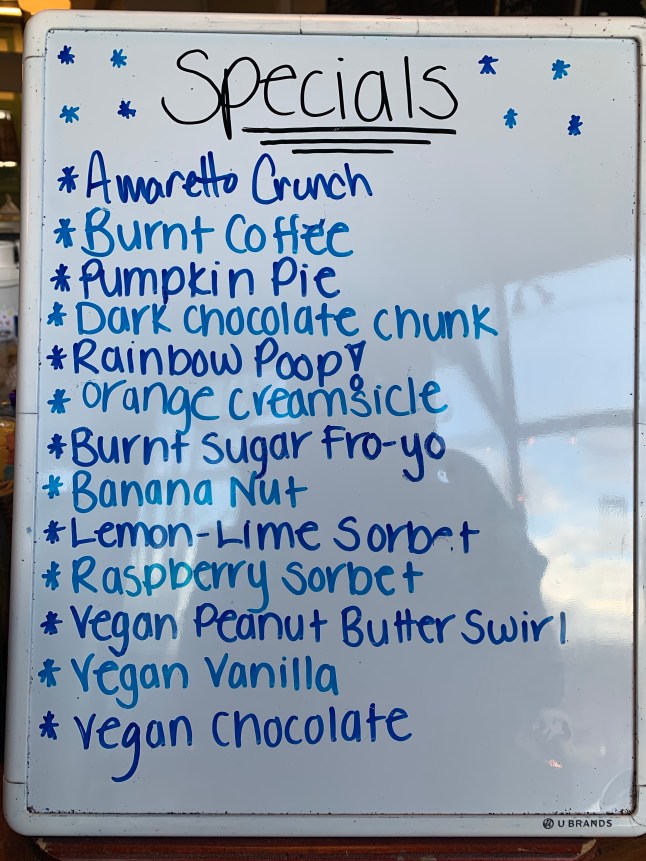 Specials
* Amaretto Crunch
* Burnt Coffee
* Pumpkin Pie
* Dark chocolate chunk
* Rainbow Poop!
* orange creamsicle
* Burnt sugar Fro-yo
* Banana Nut
* Lemon-Lime Sorbet
* Raspberry sorbet
* Vegan Peanut Butter Swirl
* Vegan Vanilla
* Vegan chocolate
U BRANDS